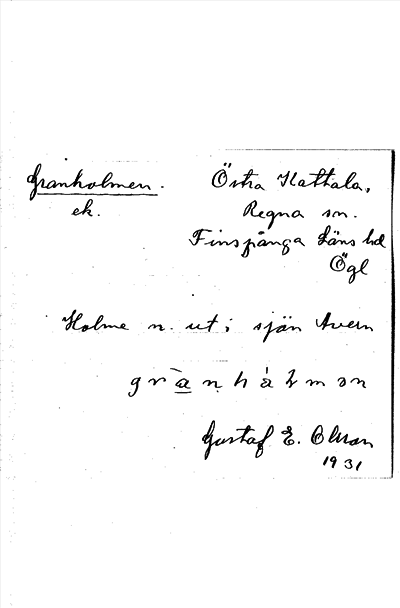 Granholmen.
ek.
Östra Skattala,
Regna sn.
Finspånga Läns hd
Ögl
Holme n. ut i sjön Avern
grànhåḷmən
Gustaf E. Olsson
1931